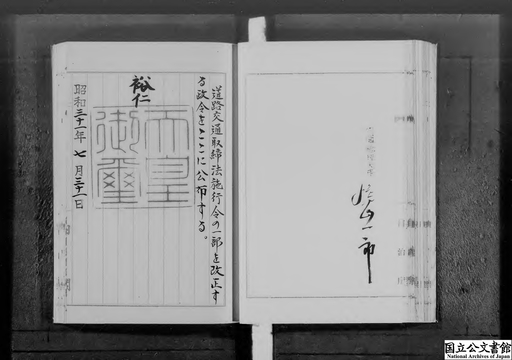 道路交通取締法施行令の一部を改正す
る政令をここに公布する。
裕仁
天皇
御璽
昭和三十一年七月三十一日
国立公文書館
National Archives of Japan